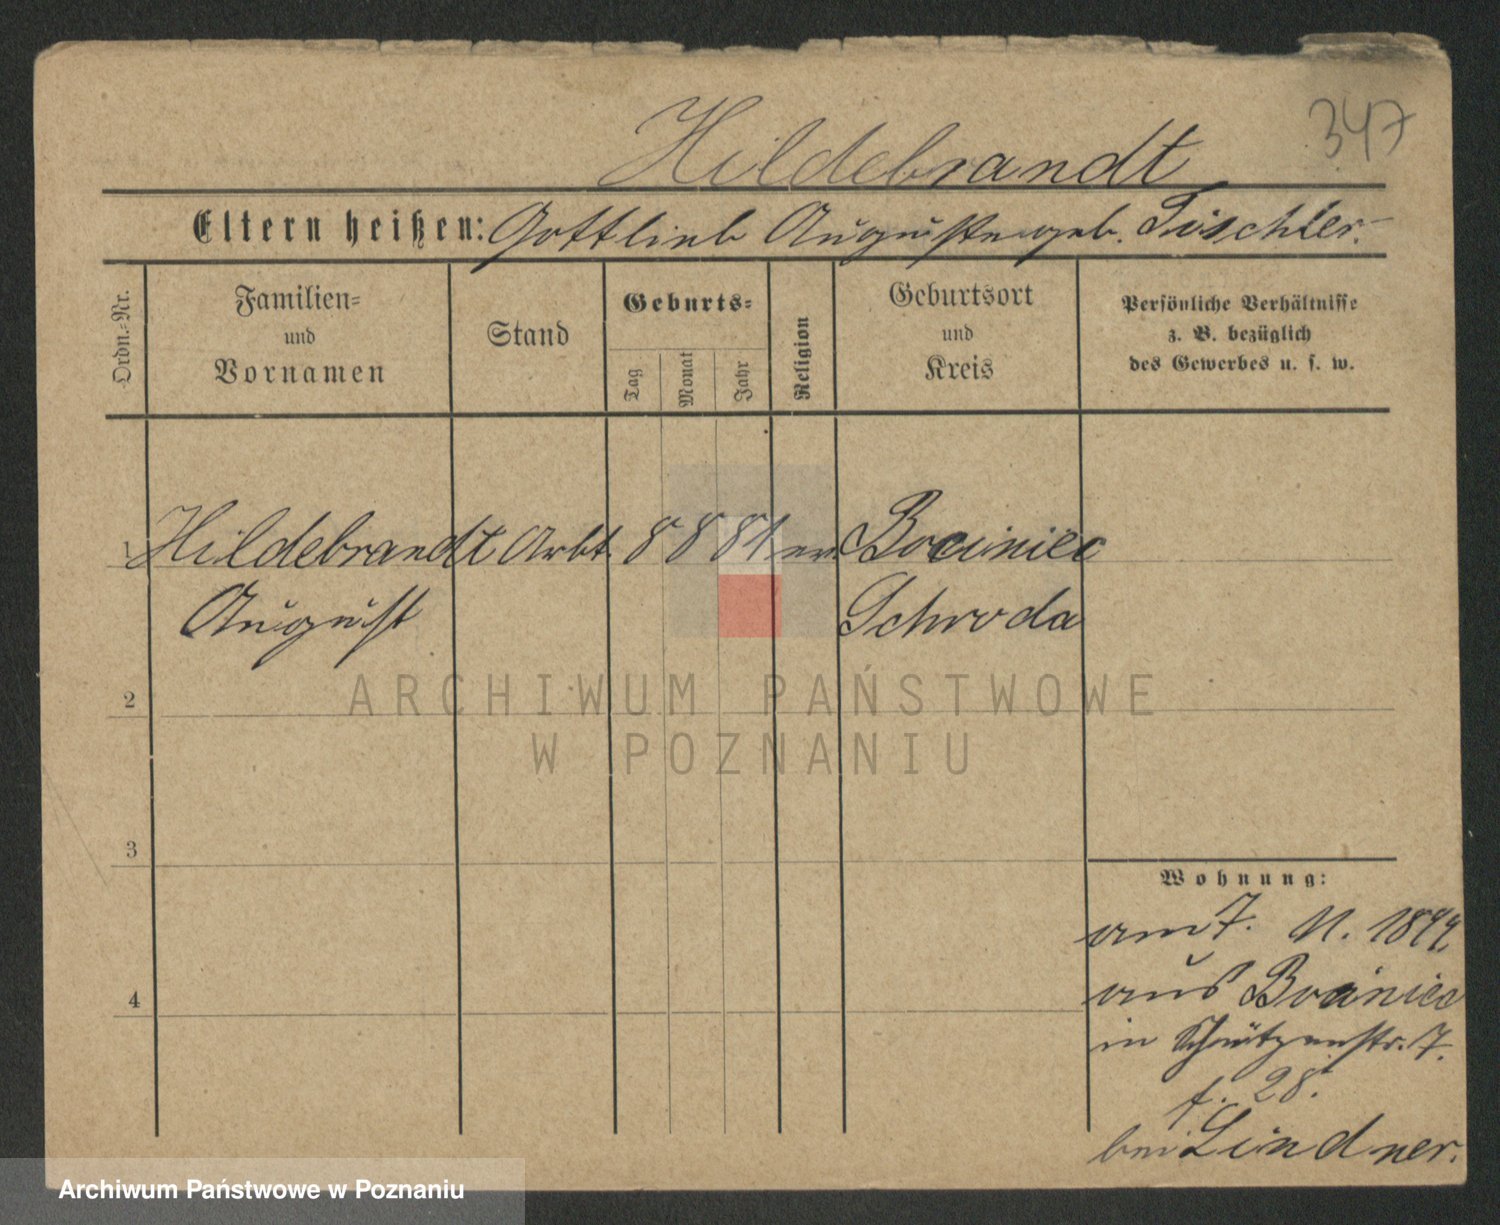 347
Hildebrandt
Eltern heißen: Gottlieb Auguste geb. Tischler.
Ordn.-Nr.
Familien-
und
Vornamen
Stand
Geburts-
Tag
Monat
Jahr
Religion
Geburtsort
und
Kreis
Persönliche Verhältnisse
z. B. bezüglich
des Gewerbes u. s. w.
1 Hildebrandt Arbt. 8 8 81 ev Bociniec
August Schroda
2
ARCHIWUM PAŃSTWOWE
W POZNANIU
3
4
Wohnung:
am 7. 11. 1899.
aus Bociniec
in Schützenstr. 7.
f. 28.
bei Lindner.
Archiwum Państwowe w Poznaniu